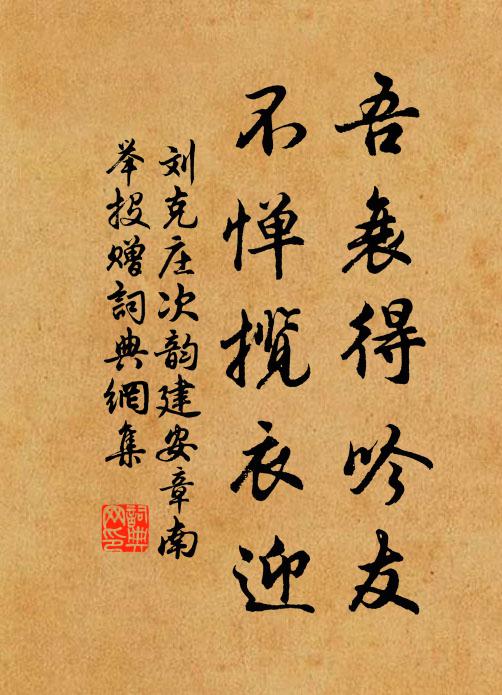 吾衰得吟友
不惮揽衣迎
刘克庄次韵建安章南
举投赠詞典網集
詞典网印